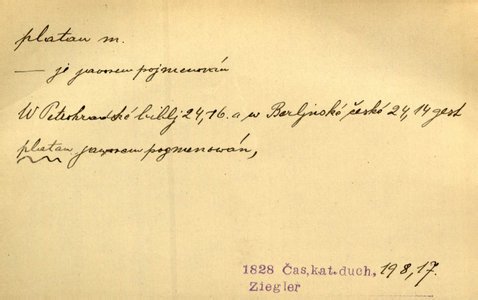 platan m.
— je javorem pojmenován
W Petohradské biblj 24,16. a w Berljnské české 24,14 gest
platan jaworem pogmenowán,
1828 Čas.kat.duch, 198,17.
Ziegler